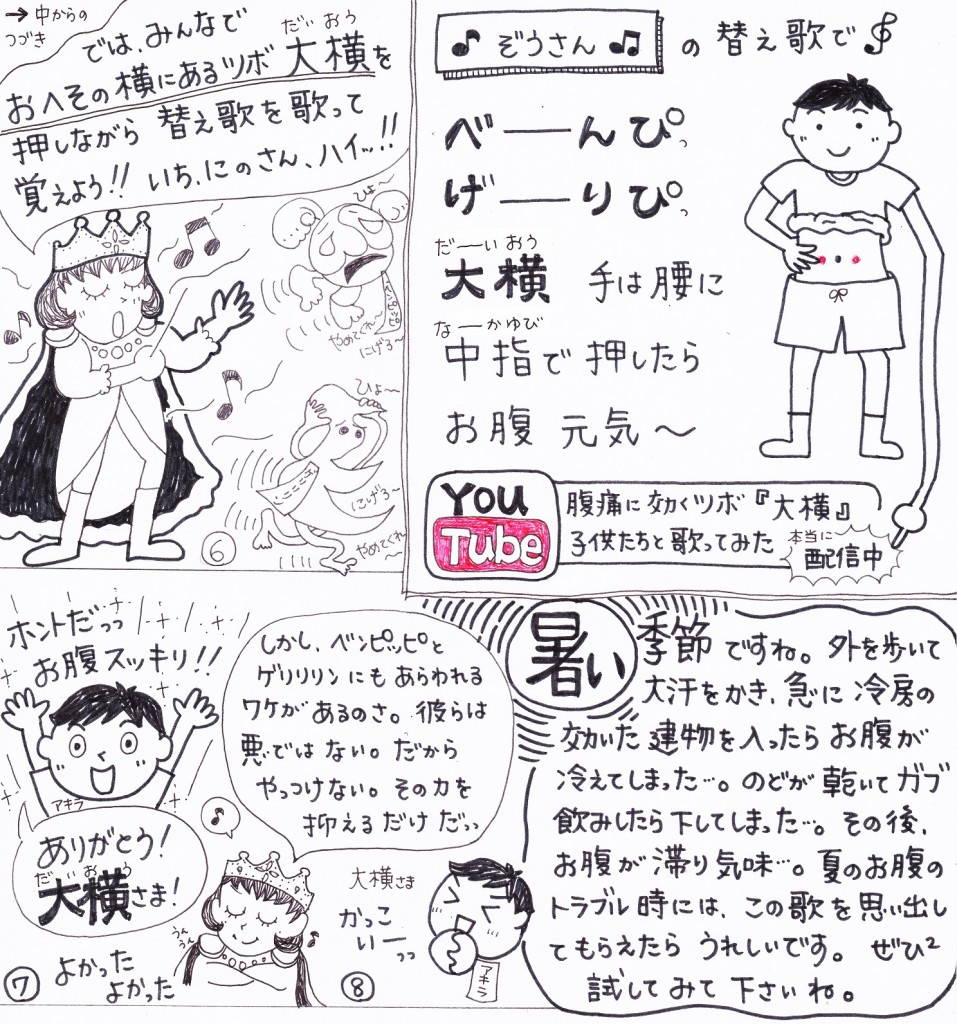 → 中からの
つづき
では、みんなで
だい おう
おへその横にあるツボ 大横を
押しながら 替え歌を歌って
覚えよう!! いち、にのさん、ハイッ!!
ひょ〜
ベンピッピ
やめてくれ〜
にげろ〜
ひょ〜
にげろ〜
やめてくれ〜
6
♪ ぞうさん ♫ の 替え歌で
べーんぴっ
げーりぴっ
だーい おう
大横 手は腰に
なーかゆび
中指で 押したら
お腹 元気〜
You
Tube
腹痛に効くツボ『大横』
子供たちと歌ってみた
本当に
配信中
ホントだっっ
お腹スッキリ!!
アキラ
ありがとう!
だい おう
大横さま!
7
よかった
よかった
しかし、ベンピッピと
ゲリリリンにもあらわれる
ワケがあるのさ。彼らは
悪ではない。だから
やっつけない。その力を
抑えるだけだっっ
うん
うん
8
大横さま
かっこ
いーっっ
アキラ
暑い季節ですね。外を歩いて
大汗をかき、急に冷房の
効いた建物を入ったらお腹が
冷えてしまった…。のどが乾いてガブ
飲みしたら下してしまった…。その後、
お腹が滞り気味…。夏のお腹の
トラブル時には、この歌を思い出し
てもらえたら うれしいです。ぜひ²
試してみて下さいね。